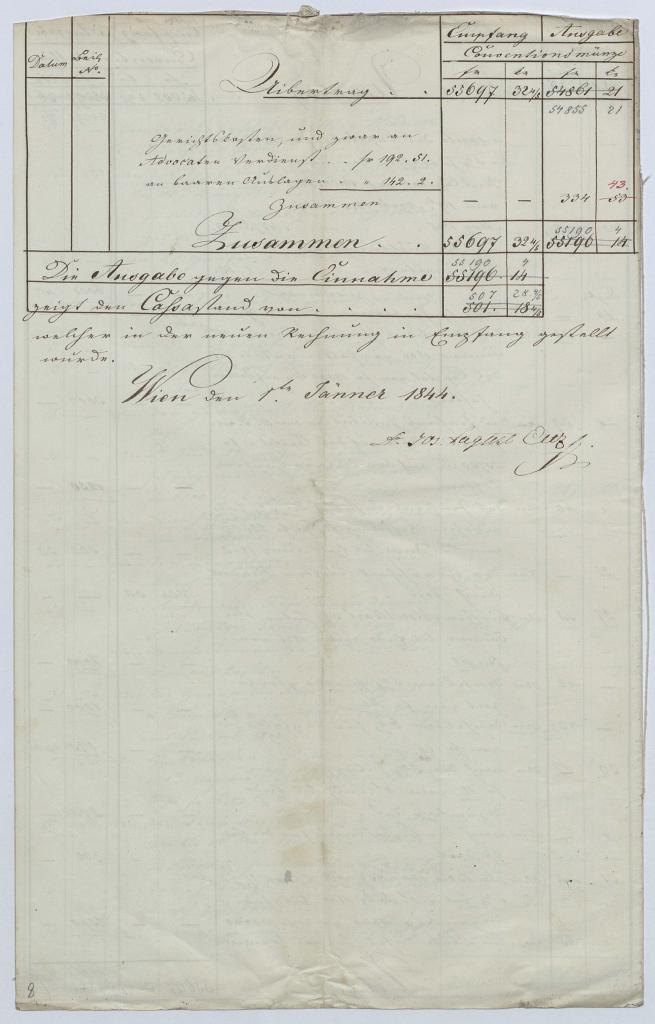 Empfang Ausgabe
Datum Beil. No. Conventionsmünze
fr kr fr kr
Uibertrag . . 55697 32 4/8 54861 21
54855 21
Gerichtskosten, und zwar an
Advocaten Verdienst . . fr 192. 51.
an baaren Auslagen . " 142. 2.
43.
Zusammen — — 334 53
55190 4
Zusammen . . 55697 32 4/8 55196 14
55190 4
Die Ausgabe gegen die Einnahme 55196. 14
507 28 4/8
zeigt den Cassastand von . . . . 501. 18 4/8
welcher in der neuen Rechnung in Empfang gestellt
wurde.
Wien den 1ten Jänner 1844.
Dr. Jos. August
8